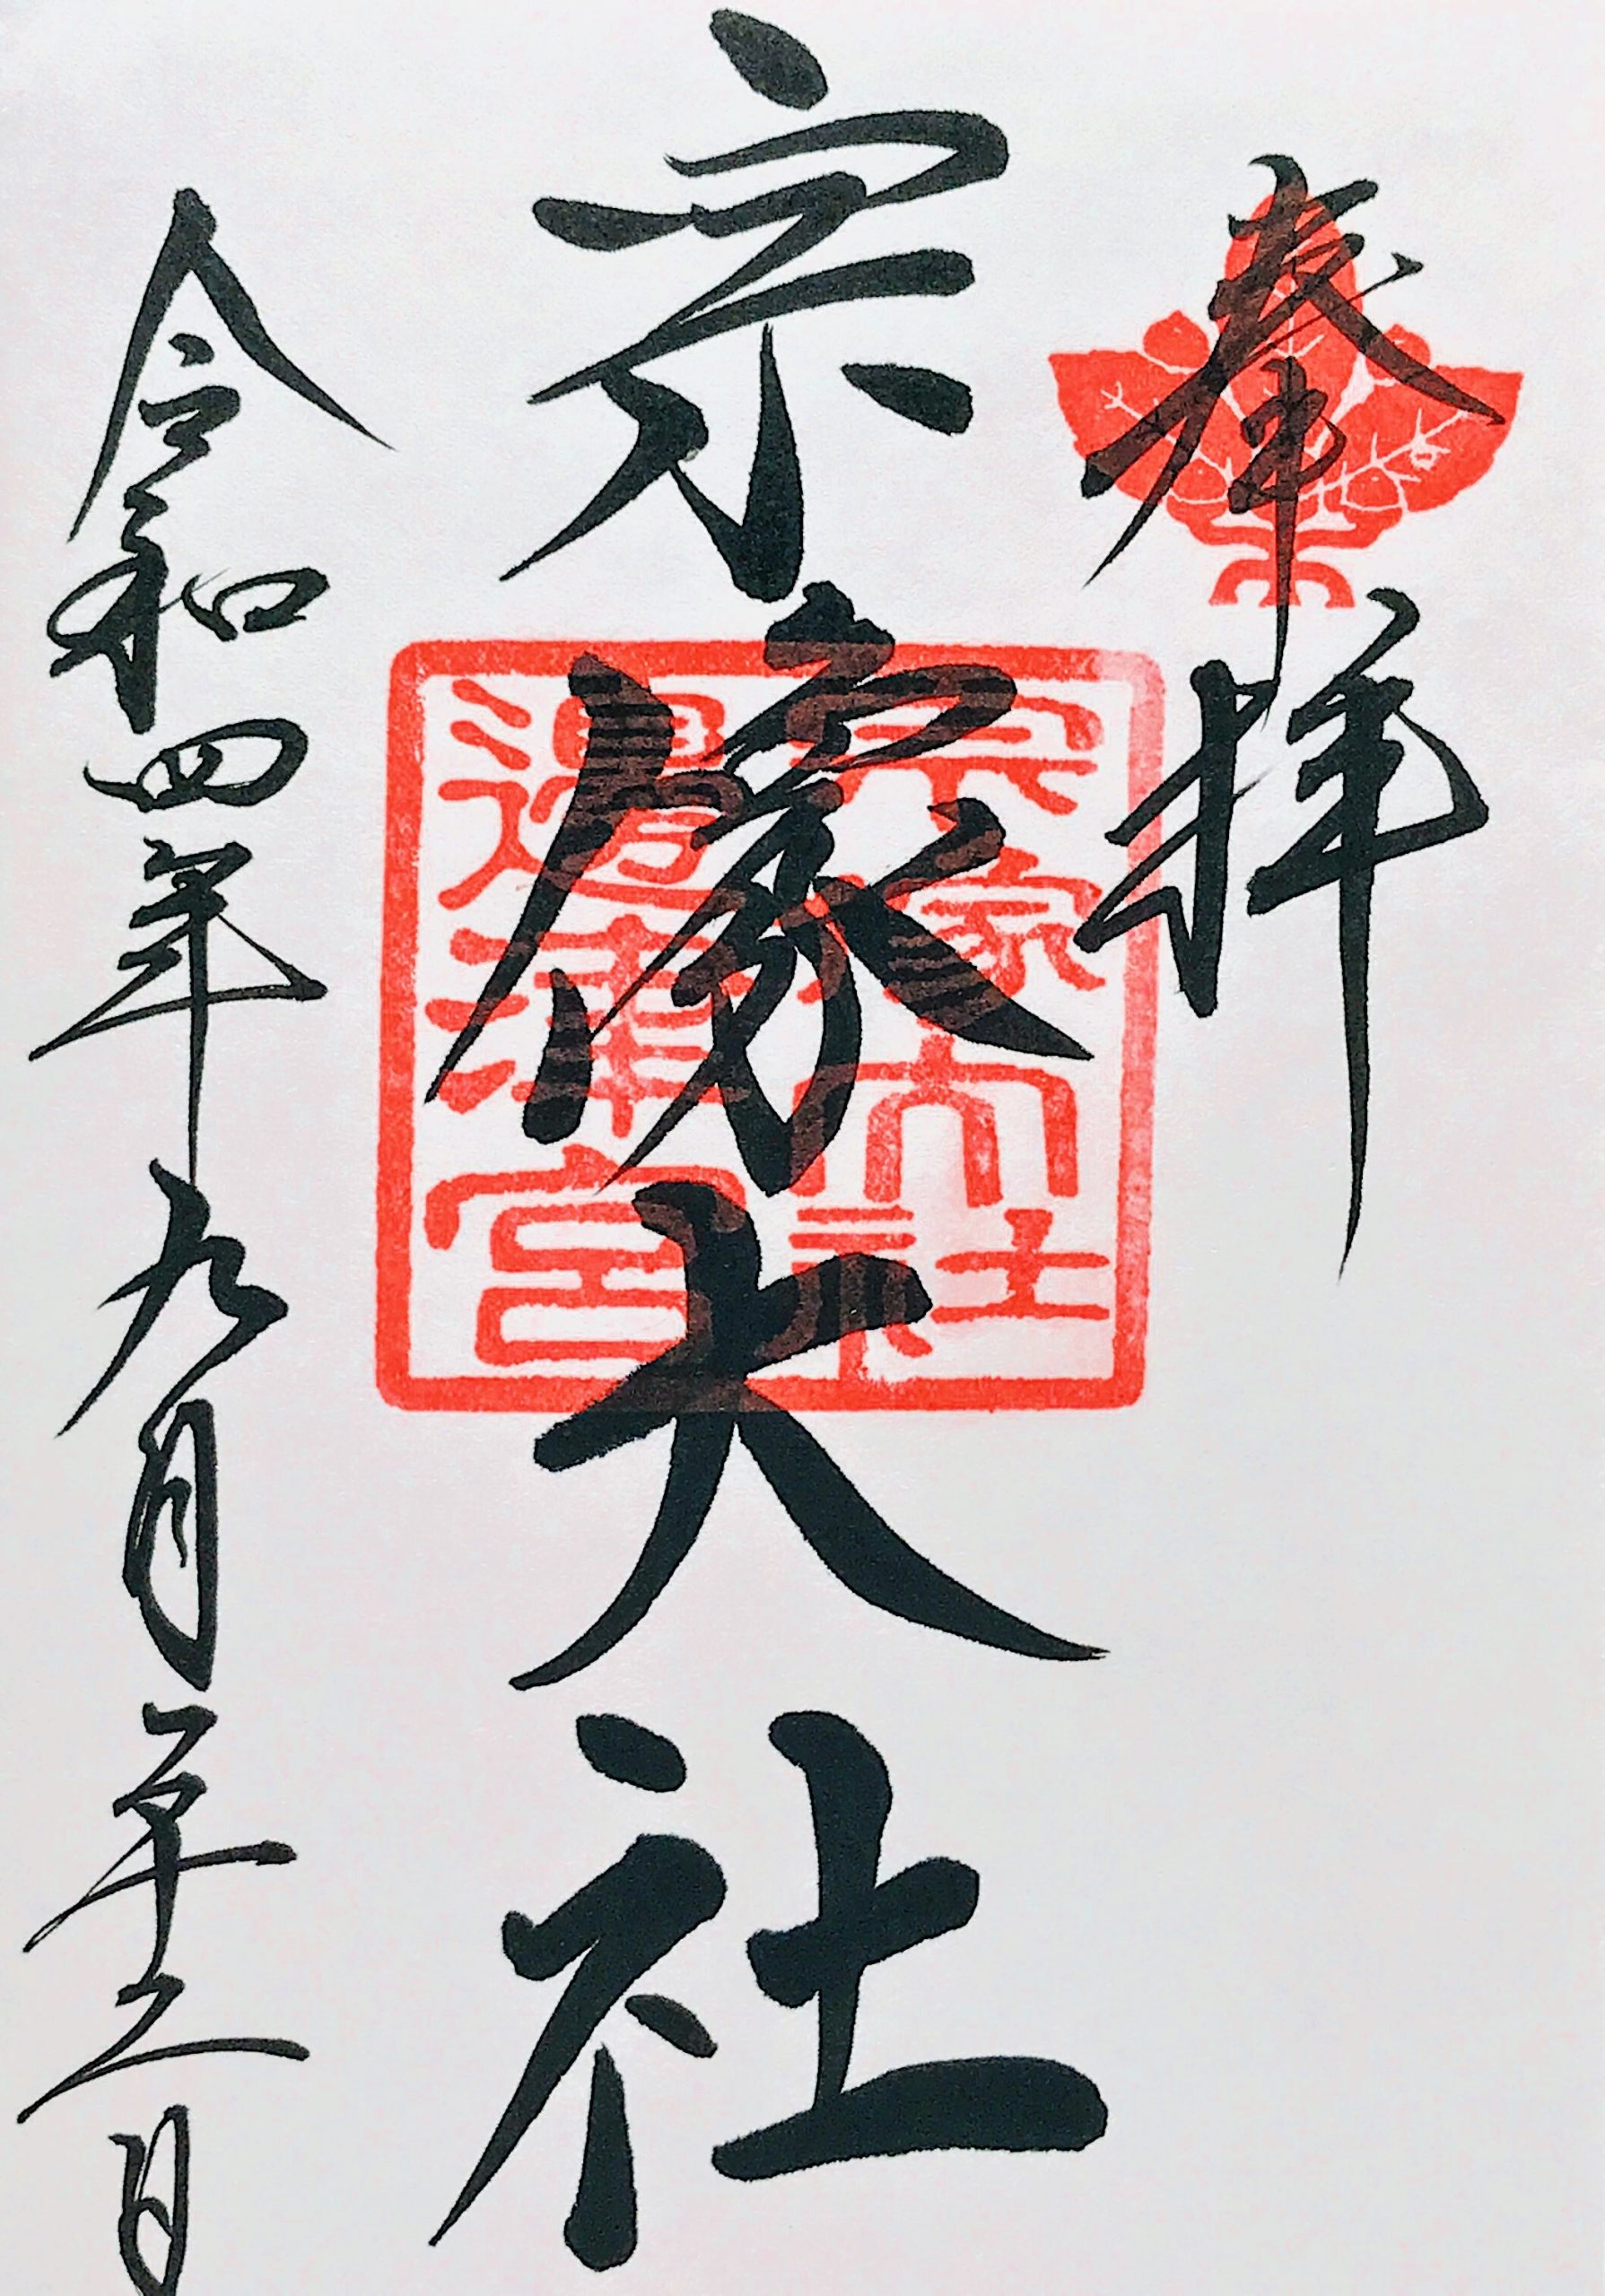 奉拝
宗像大社
宗像大社
邊津宮
令和四年九月二十二日